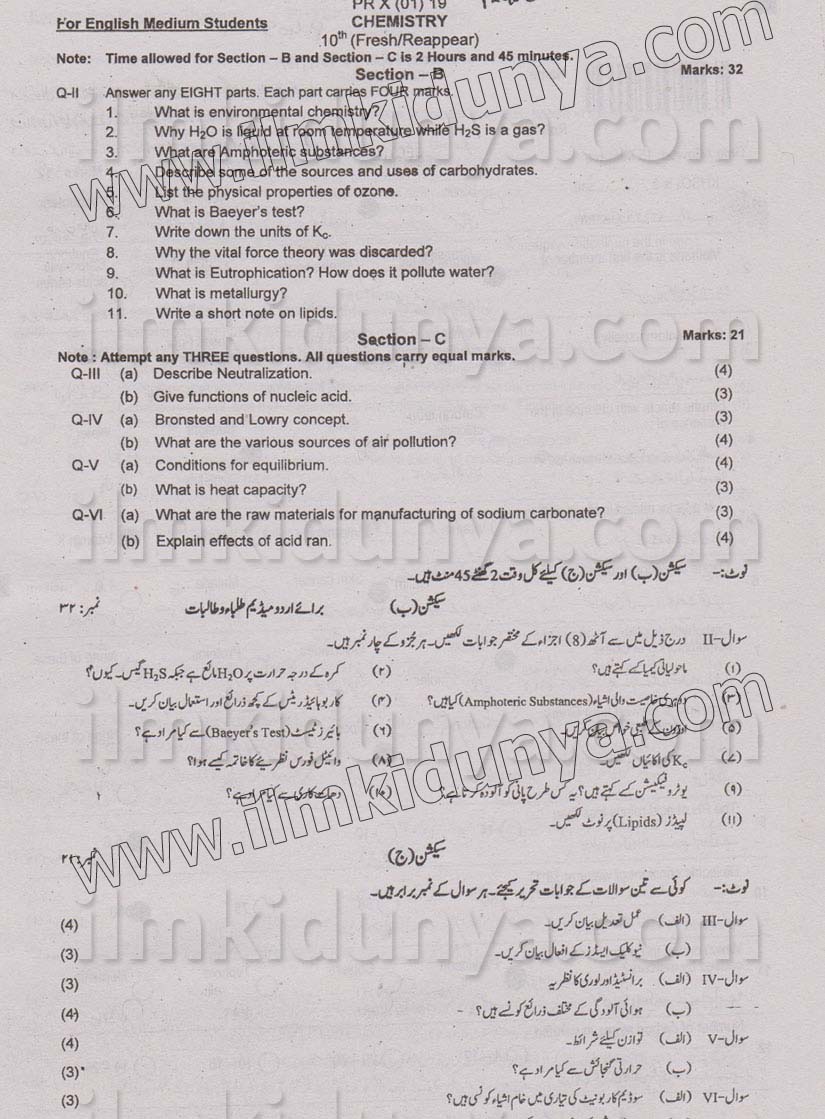 PR X (01) 19
For English Medium Students
CHEMISTRY
10th (Fresh/Reappear)
Note: Time allowed for Section – B and Section – C is 2 Hours and 45 minutes.
Section – B
Marks: 32
Q-II Answer any EIGHT parts. Each part carries FOUR marks.
1. What is environmental chemistry?
2. Why H2O is liquid at room temperature while H2S is a gas?
3. What are Amphoteric substances?
4. Describe some of the sources and uses of carbohydrates.
5. List the physical properties of ozone.
6. What is Baeyer's test?
7. Write down the units of Kc.
8. Why the vital force theory was discarded?
9. What is Eutrophication? How does it pollute water?
10. What is metallurgy?
11. Write a short note on lipids.
Section – C
Marks: 21
Note : Attempt any THREE questions. All questions carry equal marks.
Q-III (a) Describe Neutralization. (4)
(b) Give functions of nucleic acid. (3)
Q-IV (a) Bronsted and Lowry concept. (3)
(b) What are the various sources of air pollution? (4)
Q-V (a) Conditions for equilibrium. (4)
(b) What is heat capacity? (3)
Q-VI (a) What are the raw materials for manufacturing of sodium carbonate? (3)
(b) Explain effects of acid ran. (4)
نوٹ:- سیکشن (ب) اور سیکشن (ج) کیلئے کل وقت 2 گھنٹے 45 منٹ ہیں۔
برائے اردو میڈیم طلباء و طالبات سیکشن (ب) نمبر: ۳۲
سوال-II درج ذیل میں سے آٹھ (8) اجزاء کے مختصر جوابات لکھیں۔ ہر جُزو کے چار نمبر ہیں۔
(۱) ماحولیاتی کیمیا کسے کہتے ہیں؟ (۲) کمرہ کے درجہ حرارت پر H2O مائع ہے جبکہ H2S گیس۔ کیوں؟
(۳) دوہری خاصیت والی اشیاء (Amphoteric Substances) کیا ہیں؟ (۴) کاربوہائیڈریٹس کے کچھ ذرائع اور استعمال بیان کریں۔
(۵) اوزون کے طبعی خواص بیان کریں۔ (۶) بائیرز ٹیسٹ (Baeyer's Test) سے کیا مراد ہے؟
(۷) Kc کی اکائیاں لکھیں۔ (۸) وائیٹل فورس نظریئے کا خاتمہ کیسے ہوا؟
(۹) یوٹروفیکیشن کسے کہتے ہیں؟ یہ کس طرح پانی کو آلودہ کرتا ہے؟ (۱۰) دھات کاری سے کیا مراد ہے؟
(۱۱) لیپیڈز (Lipids) پر نوٹ لکھیں۔
سیکشن (ج) نمبر: ۲۱
نوٹ:- کوئی سے تین سوالات کے جوابات تحریر کیجئے۔ ہر سوال کے نمبر برابر ہیں۔
سوال-III (الف) عمل تعدیل بیان کریں۔ (4)
(ب) نیوکلیک ایسڈز کے افعال بیان کریں۔ (3)
سوال-IV (الف) برانسٹیڈ اور لوری کا نظریہ (3)
(ب) ہوائی آلودگی کے مختلف ذرائع کونسے ہیں؟ (4)
سوال-V (الف) توازن کیلئے شرائط۔ (4)
(ب) حرارتی گنجائش سے کیا مراد ہے؟ (3)
سوال-VI (الف) سوڈیم کاربونیٹ کی تیاری میں خام اشیاء کونسی ہیں؟ (3)
www.ilmkidunya.com
www.ilmkidunya.com
ilmkidunya.com
ilmkidunya.com
ilmkidunya.com
ilmkidunya.com
ilmkidunya.com